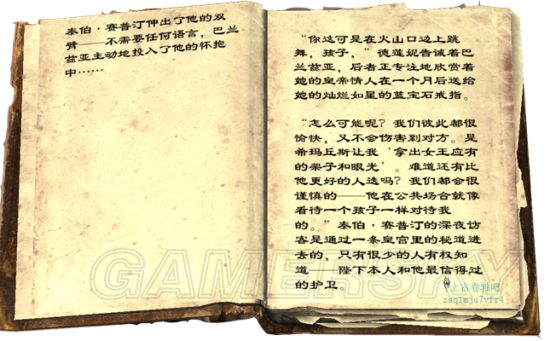 泰伯·赛普汀伸出了他的双
臂——不需要任何语言，巴兰
兹亚主动地投入了他的怀抱
中……
“你这可是在火山口边上跳
舞，孩子，”德莲妮告诫着巴
兰兹亚，后者正专注地欣赏着
她的皇帝情人在一个月后送给
她的灿烂如星的蓝宝石戒指。
“怎么可能呢？我们彼此都很
愉快，又不会伤害到对方。是
希玛丘斯让我‘拿出女王应有
的架子和眼光’。难道还有比
他更好的人选吗？我们都会很
谨慎的——他在公共场合就像
看待一个孩子一样对待我
的。”泰伯·赛普汀的深夜访
客是通过一条皇宫里的秘道进
去的，只有很少的人有权知
道——陛下本人和他最信得过
的护卫。
GAMERSKY
上古卷轴吧
zsq1mju7vfr4